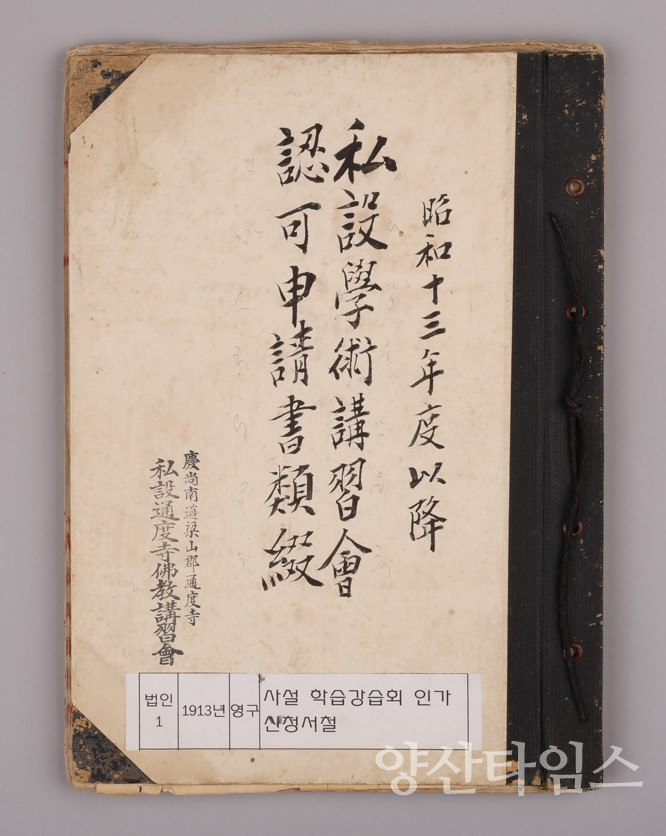 昭和十三年度以降
私設學術講習會
認可申請書類綴
慶尚南道梁山郡通度寺
私設通度寺佛教講習會
법인 1
1913년
영구
사설 학습강습회 인가
신청서철
양산타임스